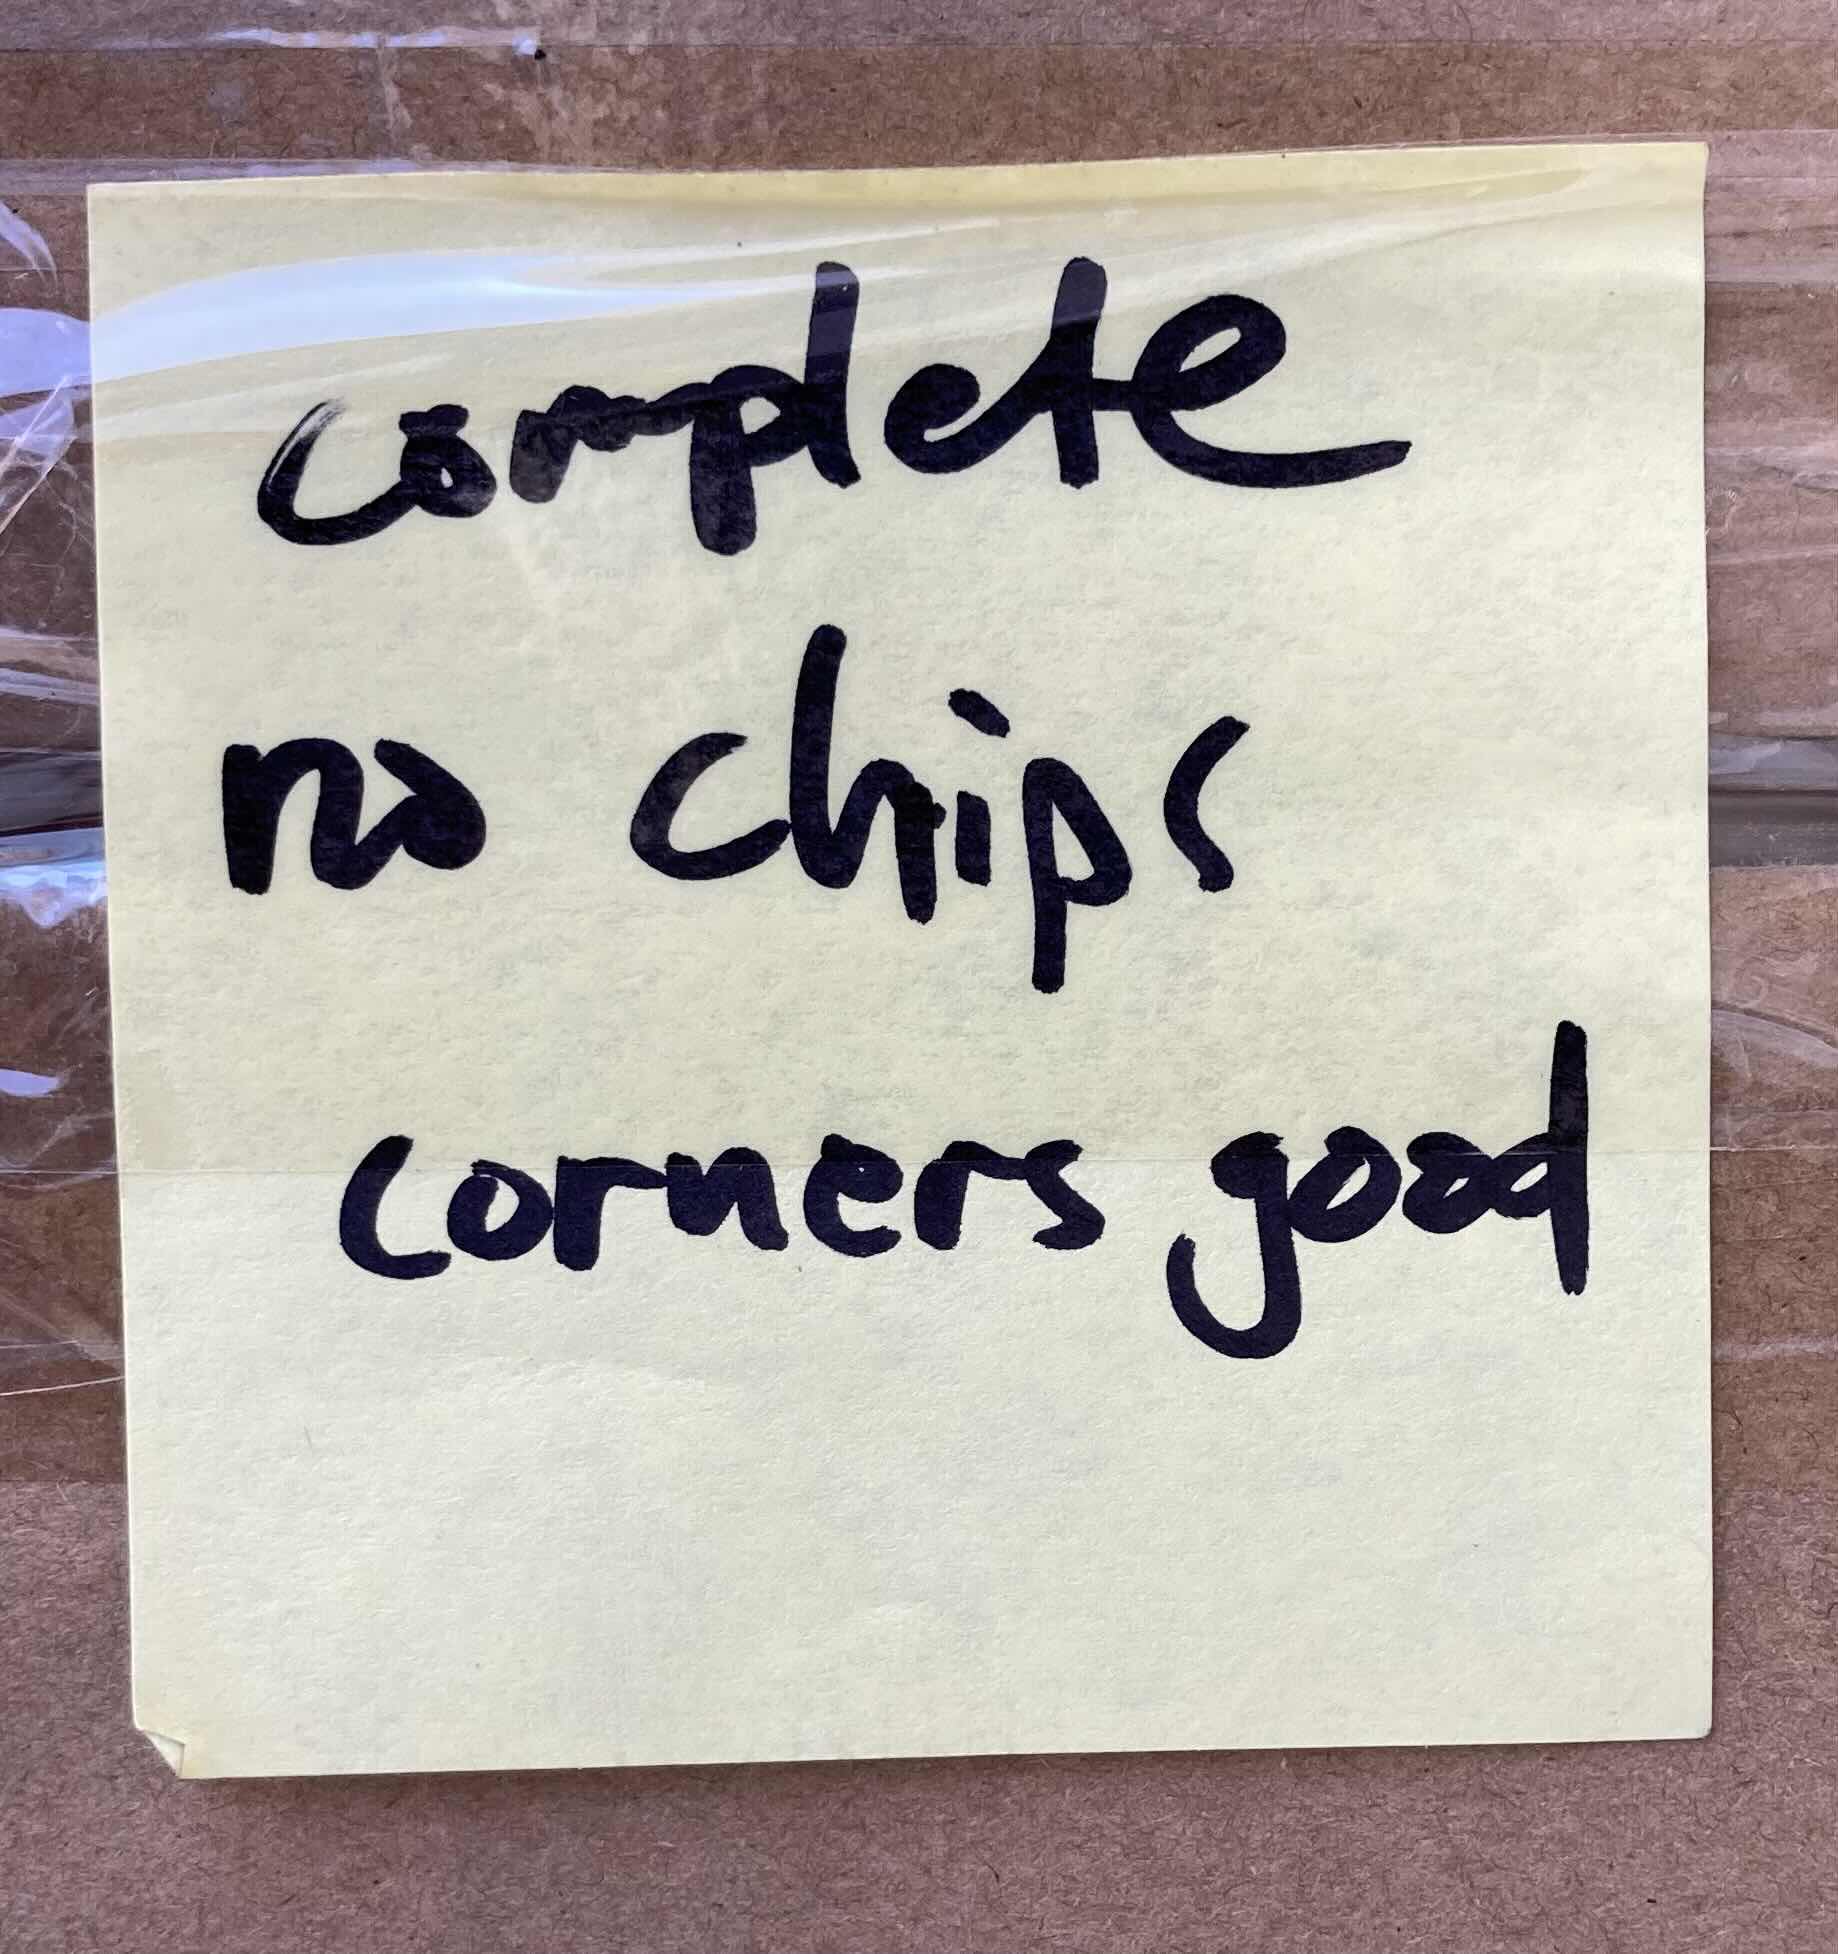 complete
no chips
corners good